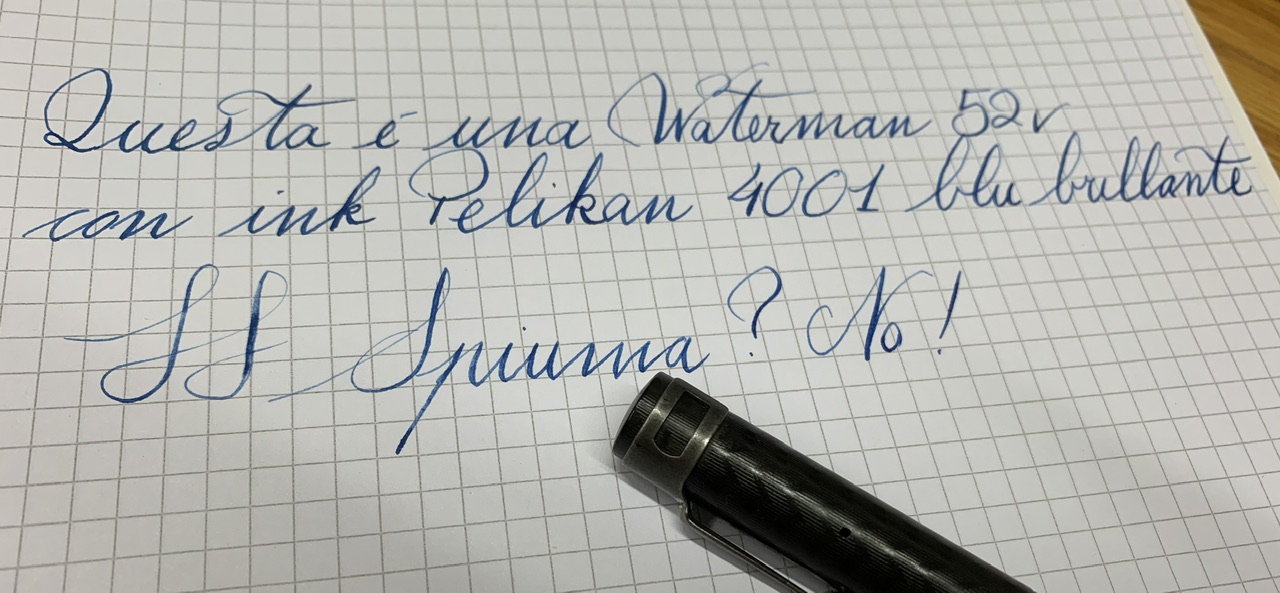 Questa è una Waterman 52v
con ink Pelikan 4001 blu brillante
SS Spiuma? No!